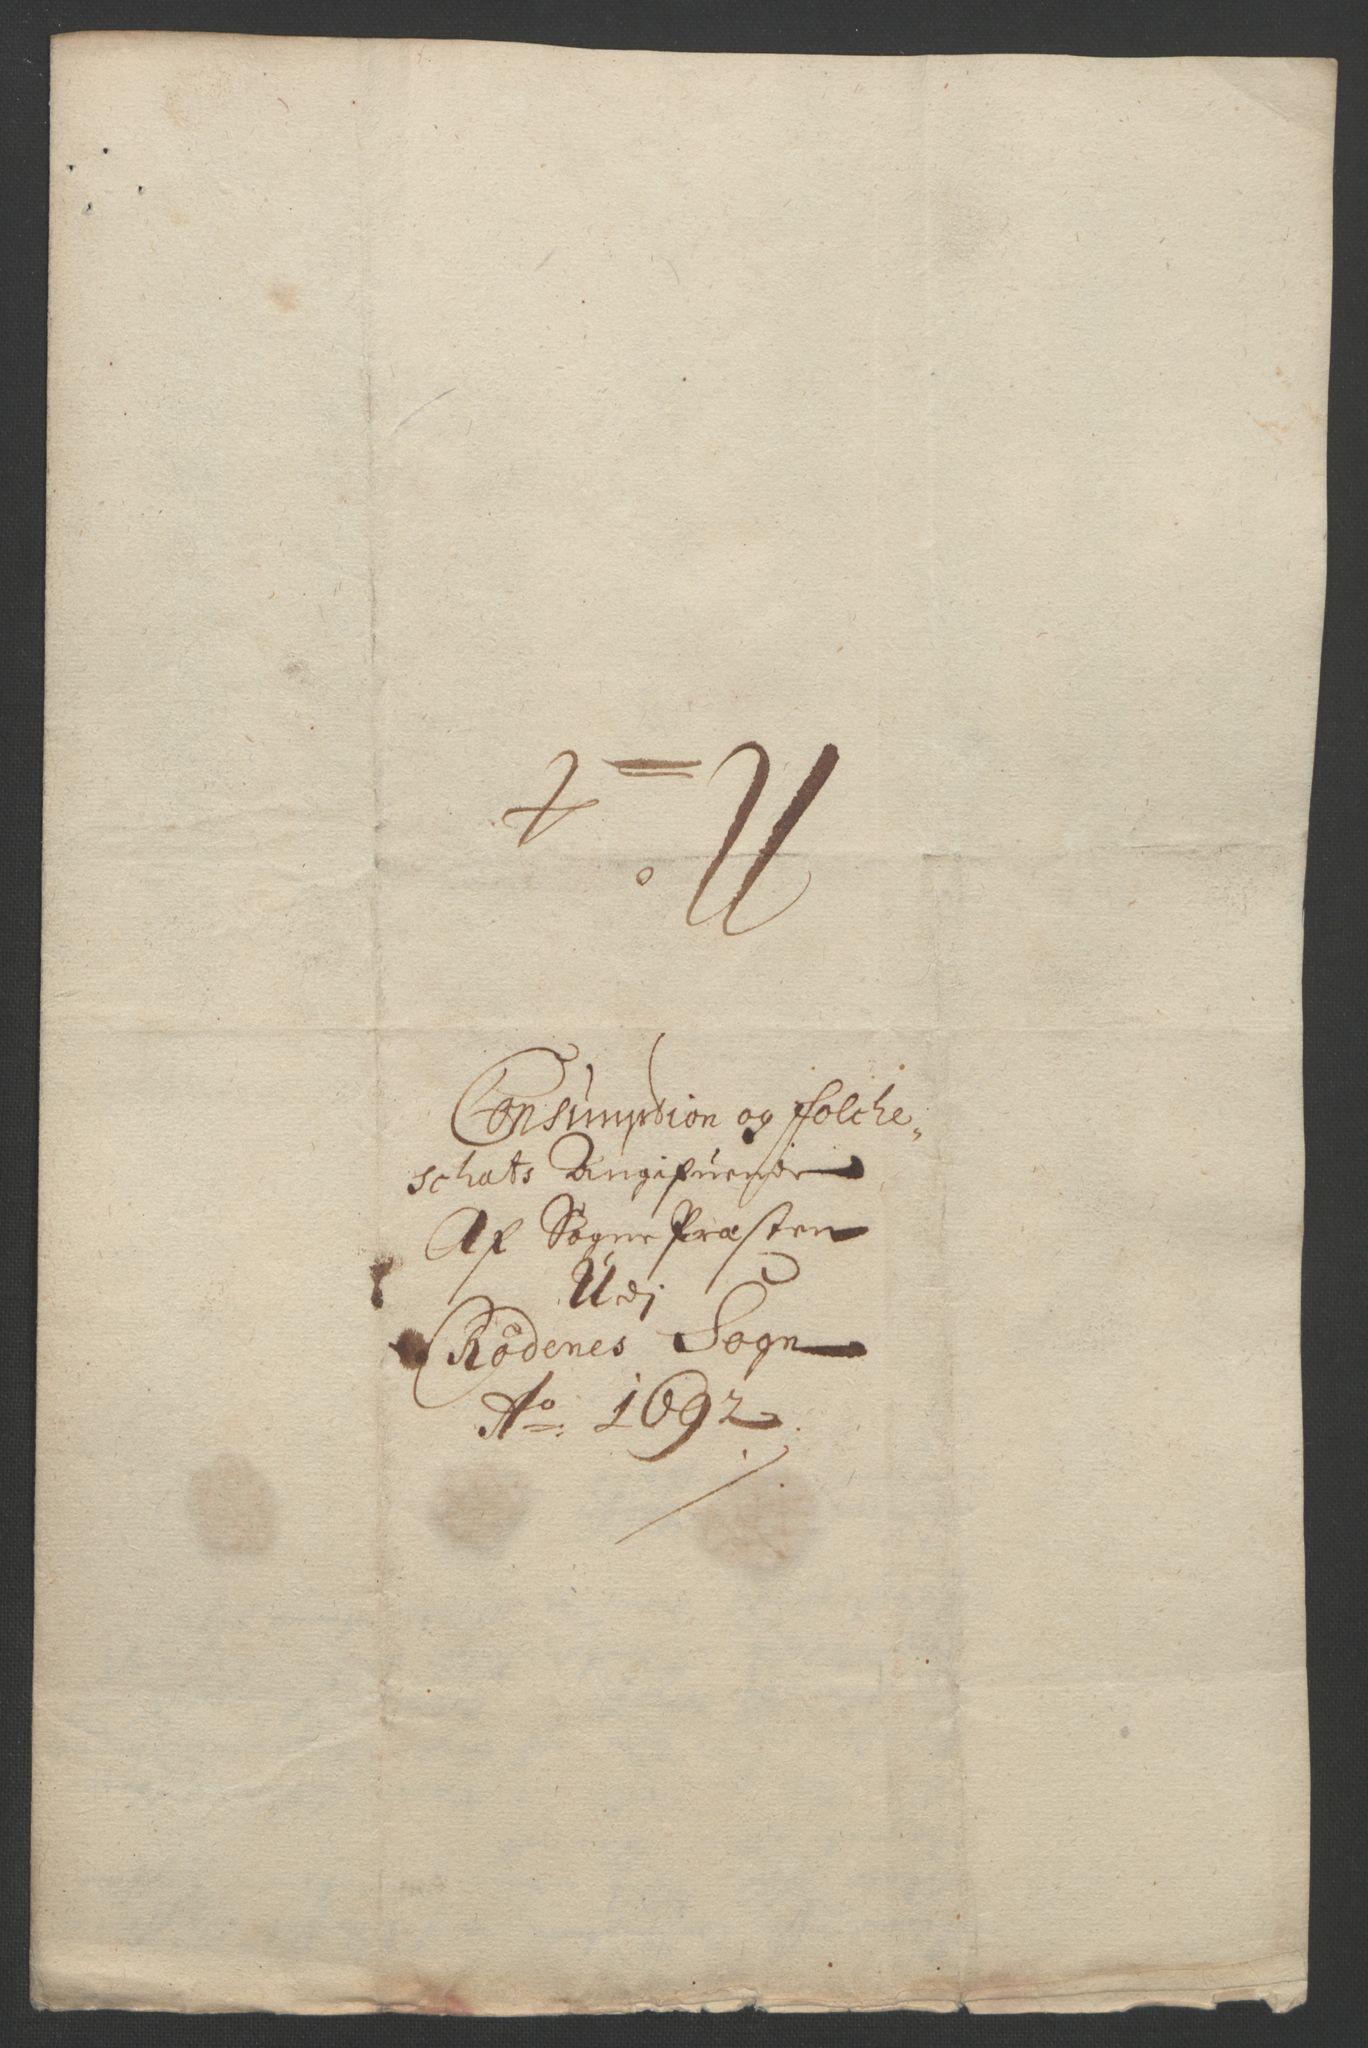 Consumption og ffolche„
schats Angifuende
Af Sogne Præsten
Udj
Rødenes Sogn
Ao: 1692